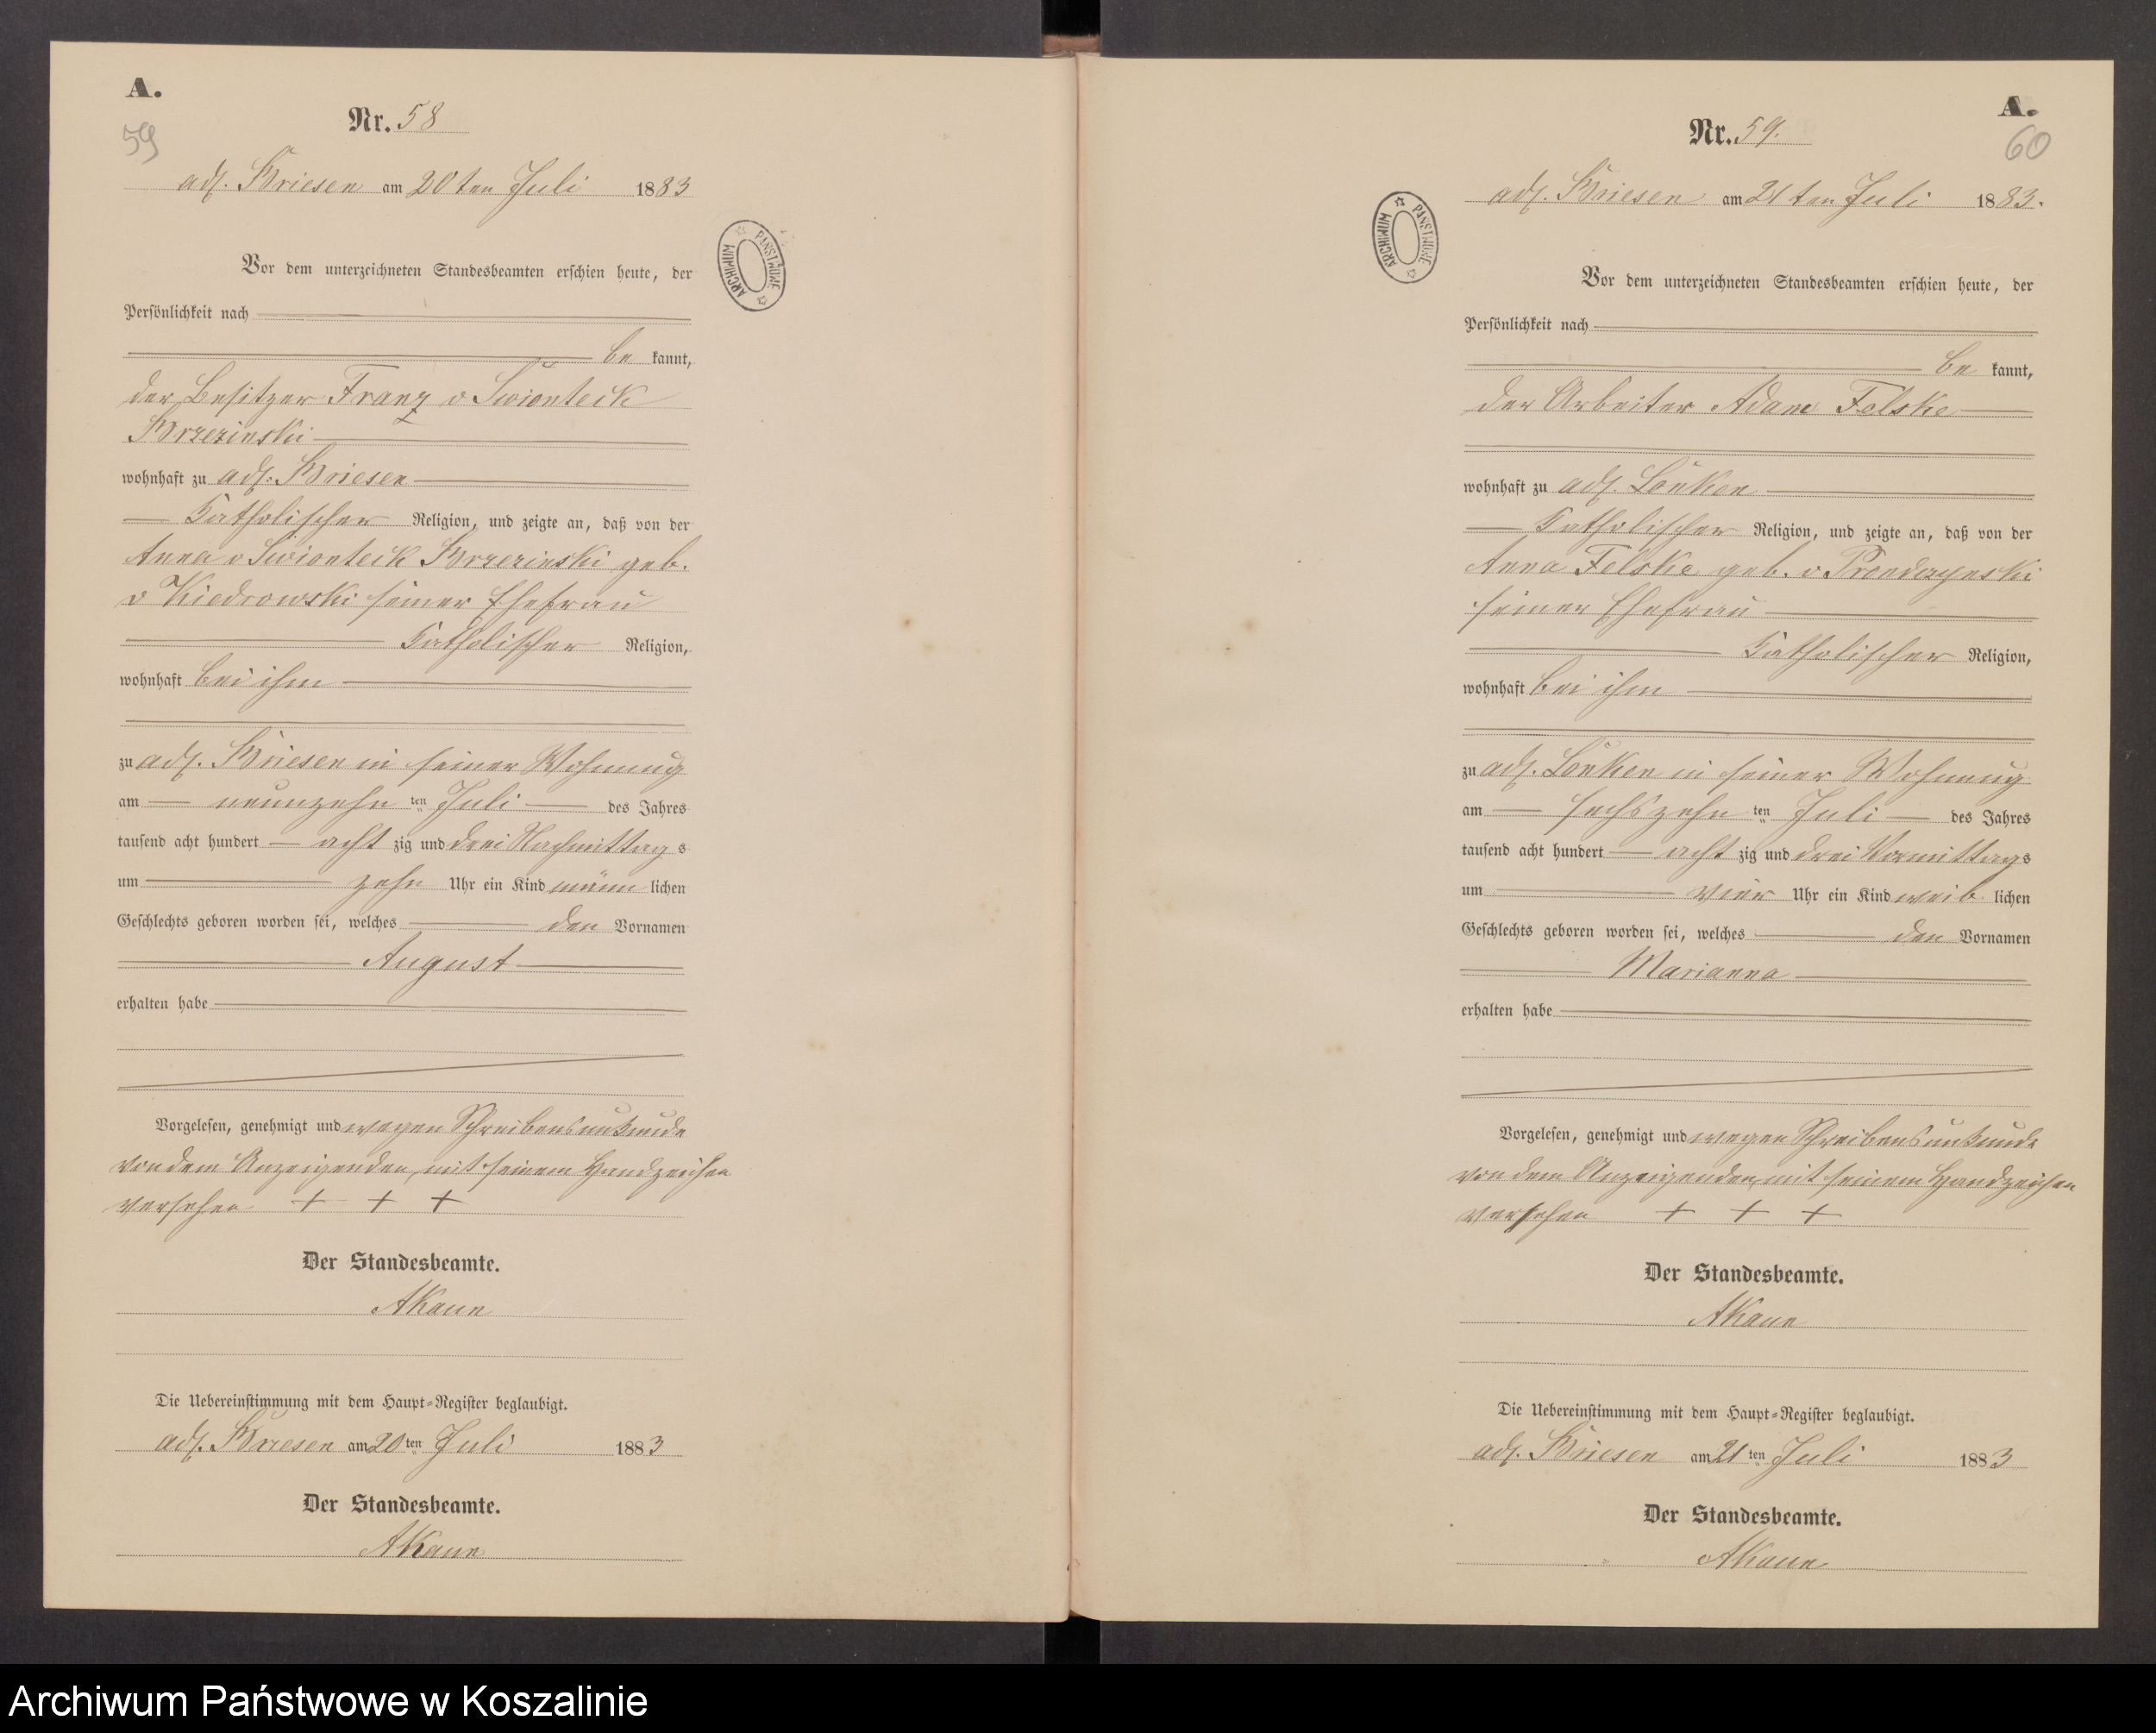 A.
59
Nr. 58
adl. Briesen am 20ten Juli 1883
ARCHIWUM PAŃSTWOWE
Vor dem unterzeichneten Standesbeamten erschien heute, der
Persönlichkeit nach
be kannt,
der Besitzer Franz v Swionteck
Brzezinski
wohnhaft zu adl. Briesen
Katholischer Religion, und zeigte an, daß von der
Anna v Swionteck Brzezinski geb.
v Kiedrowski seiner Ehefrau
Katholischer Religion,
wohnhaft bei ihm
zu adl. Briesen in seiner Wohnung
am neunzehn ten Juli des Jahres
tausend acht hundert acht zig und drei Nachmittag s
um zehn Uhr ein Kind männ lichen
Geschlechts geboren worden sei, welches den Vornamen
August
erhalten habe
Vorgelesen, genehmigt und wegen Schreibensunkunde
von dem Anzeigenden, mit seinem Handzeichen
versehen + + +
Der Standesbeamte.
AKaun
Die Uebereinstimmung mit dem Haupt-Register beglaubigt.
adl. Briesen am 20 ten Juli 1883
Der Standesbeamte.
AKaun
A.
60
Nr. 59.
adl. Briesen am 21ten Juli 1883.
ARCHIWUM PAŃSTWOWE
Vor dem unterzeichneten Standesbeamten erschien heute, der
Persönlichkeit nach
be kannt,
der Arbeiter Adam Felske
wohnhaft zu adl. Lonken
Katholischer Religion, und zeigte an, daß von der
Anna Felske geb. v Prondzynski
seiner Ehefrau
Katholischer Religion,
wohnhaft bei ihm
zu adl. Lonken in seiner Wohnung
am sechszehn ten Juli des Jahres
tausend acht hundert acht zig und drei Vormittags
um vier Uhr ein Kind weib lichen
Geschlechts geboren worden sei, welches den Vornamen
Marianna
erhalten habe
Vorgelesen, genehmigt und wegen Schreibensunkunde
von dem Anzeigenden, mit seinem Handzeichen
versehen + + +
Der Standesbeamte.
AKaun
Die Uebereinstimmung mit dem Haupt-Register beglaubigt.
adl. Briesen am 21 ten Juli 1883
Der Standesbeamte.
AKaun
Archiwum Państwowe w Koszalinie